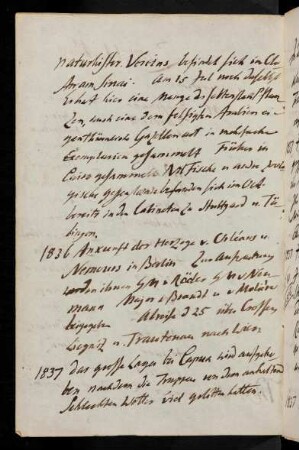 naturhistor. Vereins, befindet sich im Clo
Am 15 Jul noch daselbst
hier eine Menge der seltensten Pflan
zen, auch eine dem felsigten Arabien ei
genthümliche Gazellenart in mehrfachen
Exemplaren gesammelt. Früher in
Cairo gesammelte Fische u andere zoolo
gische Gegenstände befanden sich im Oct
bereits in den Cabineten zu Stuttgard u Tü
bingen.
1836 Ankunft der Herzoge v. Orléans u
Nemours in Berlin. Zur Aufwartung
werden ihnen GM v Röder GM v Neu
mann Major v Brandt u v Molière
beigegeben. Abreise d 25 über Crossen,
Liegnitz u Trautenau nach Wien
1837 das grosse Lager bei Capua wird aufgeho
ben nachdem die Truppen von dem anhaltend
schlechten Wetter viel gelitten hatten.